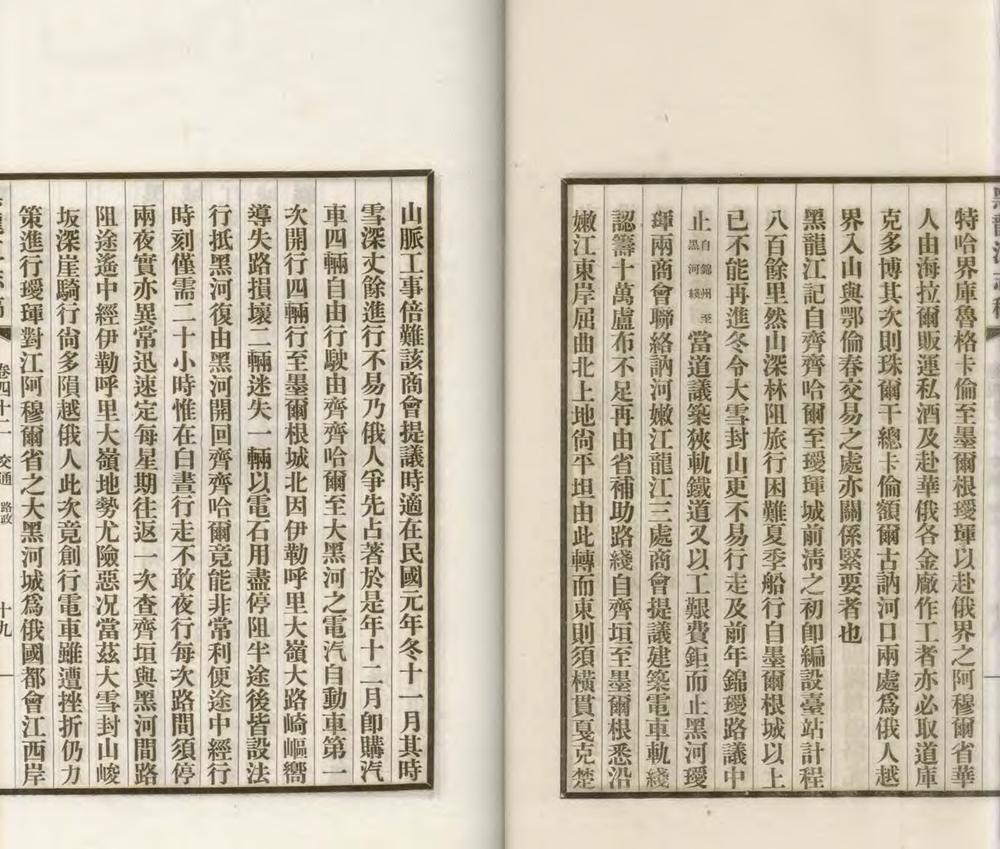 黑龍江志稿
特哈界庫魯格卡倫至墨爾根璦琿以赴俄界之阿穆爾省華
人由海拉爾販運私酒及赴華俄各金廠作工者亦必取道庫
克多博其次則珠爾干總卡倫額爾古訥河口兩處爲俄人越
界入山與鄂倫春交易之處亦關係緊要者也
黑龍江記自齊齊哈爾至璦琿城前淸之初卽編設臺站計程
八百餘里然山深林阻旅行困難夏季船行自墨爾根城以上
已不能再進冬令大雪封山更不易行走及前年錦璦路議中
止自錦州至黑河綫當道議築狹軌鐵道又以工艱費鉅而止黑河璦
琿兩商會聯絡訥河嫩江龍江三處商會提議建築電車軌綫
認籌十萬盧布不足再由省補助路綫自齊垣至墨爾根悉沿
嫩江東岸屈曲北上地尙平坦由此轉而東則須橫貫戛克楚
山脈工事倍難該商會提議時適在民國元年冬十一月其時
雪深丈餘進行不易乃俄人爭先占著於是年十二月卽購汽
車四輛自由行駛由齊齊哈爾至大黑河之電汽自動車第一
次開行四輛行至墨爾根城北因伊勒呼里大嶺大路崎嶇嚮
導失路損壞二輛迷失一輛以電石用盡停阻半途後皆設法
行抵黑河復由黑河開回齊齊哈爾竟能非常利便途中經行
時刻僅需二十小時惟在白晝行走不敢夜行每次路間須停
兩夜實亦異常迅速定每星期往返一次查齊垣與黑河間路
阻途遙中經伊勒呼里大嶺地勢尤險惡况當茲大雪封山峻
坂深崖騎行尙多隕越俄人此次竟創行電車雖遭挫折仍力
策進行璦琿對江阿穆爾省之大黑河城爲俄國都會江西岸
卷四十二 交通 路政 十九